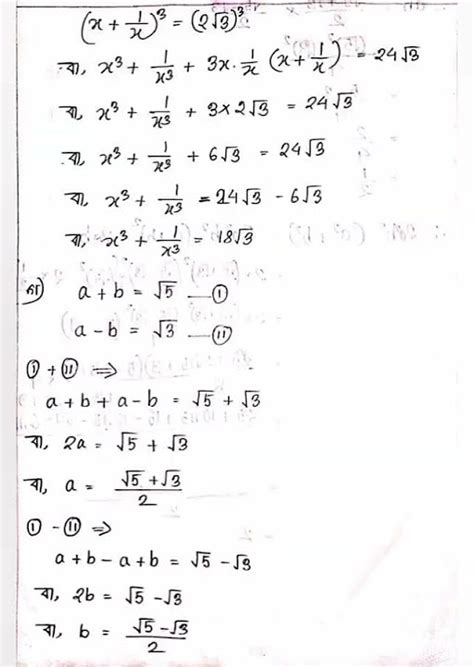 (x + 1/x)³ = (2√3)³
বা, x³ + 1/x³ + 3x · 1/x (x + 1/x) = 24√3
বা, x³ + 1/x³ + 3 × 2√3 = 24√3
বা, x³ + 1/x³ + 6√3 = 24√3
বা, x³ + 1/x³ = 24√3 - 6√3
বা, x³ + 1/x³ = 18√3
গ) a + b = √5 — ⓘ
a - b = √3 — ⓘⓘ
ⓘ + ⓘⓘ ⇒
a + b + a - b = √5 + √3
বা, 2a = √5 + √3
বা, a = (√5 + √3)/2
ⓘ - ⓘⓘ ⇒
a + b - a + b = √5 - √3
বা, 2b = √5 - √3
বা, b = (√5 - √3)/2